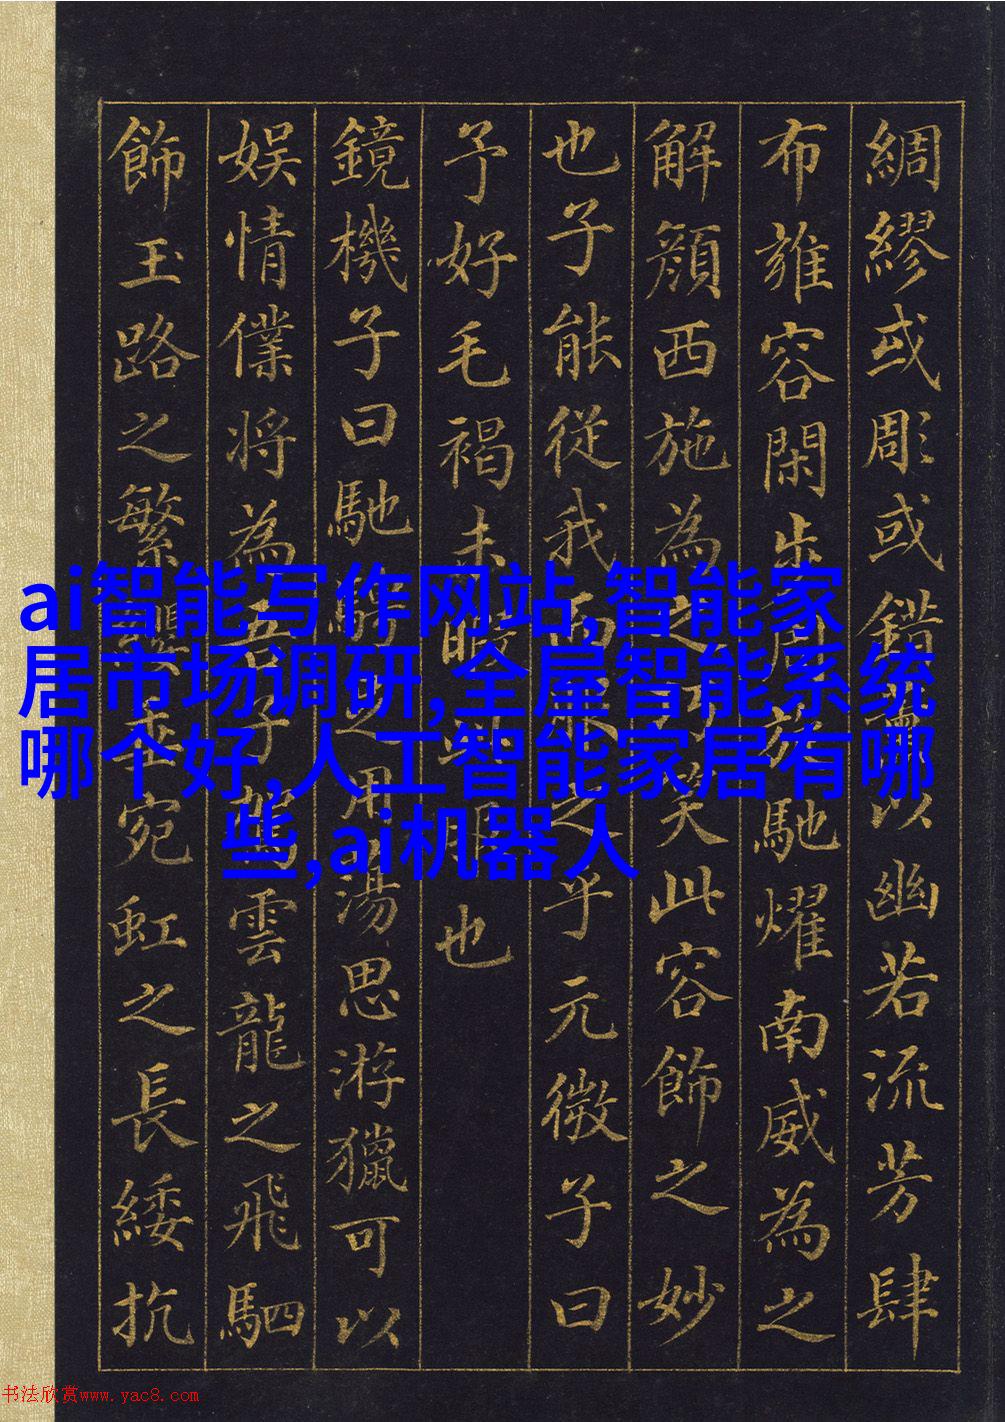 綢繆或彫或錯薰以幽若流芳肆
布雍容閑步周旋馳燿南威為之
解顏西施為之巧笑此容飾之妙
也子能從我而服之乎元微子曰
予好毛褐未暇此服也
鏡機子曰馳騁足用蕩思游獵可以
娛情僕將為吾子駕雲龍之飛駟
飾玉路之繁纓垂宛虹之長綏抗
ai智能写作网站,智能家
居市场调研,全屋智能系统
哪个好,人工智能家居有哪
些,ai机器人
书法欣赏www.yac8.com